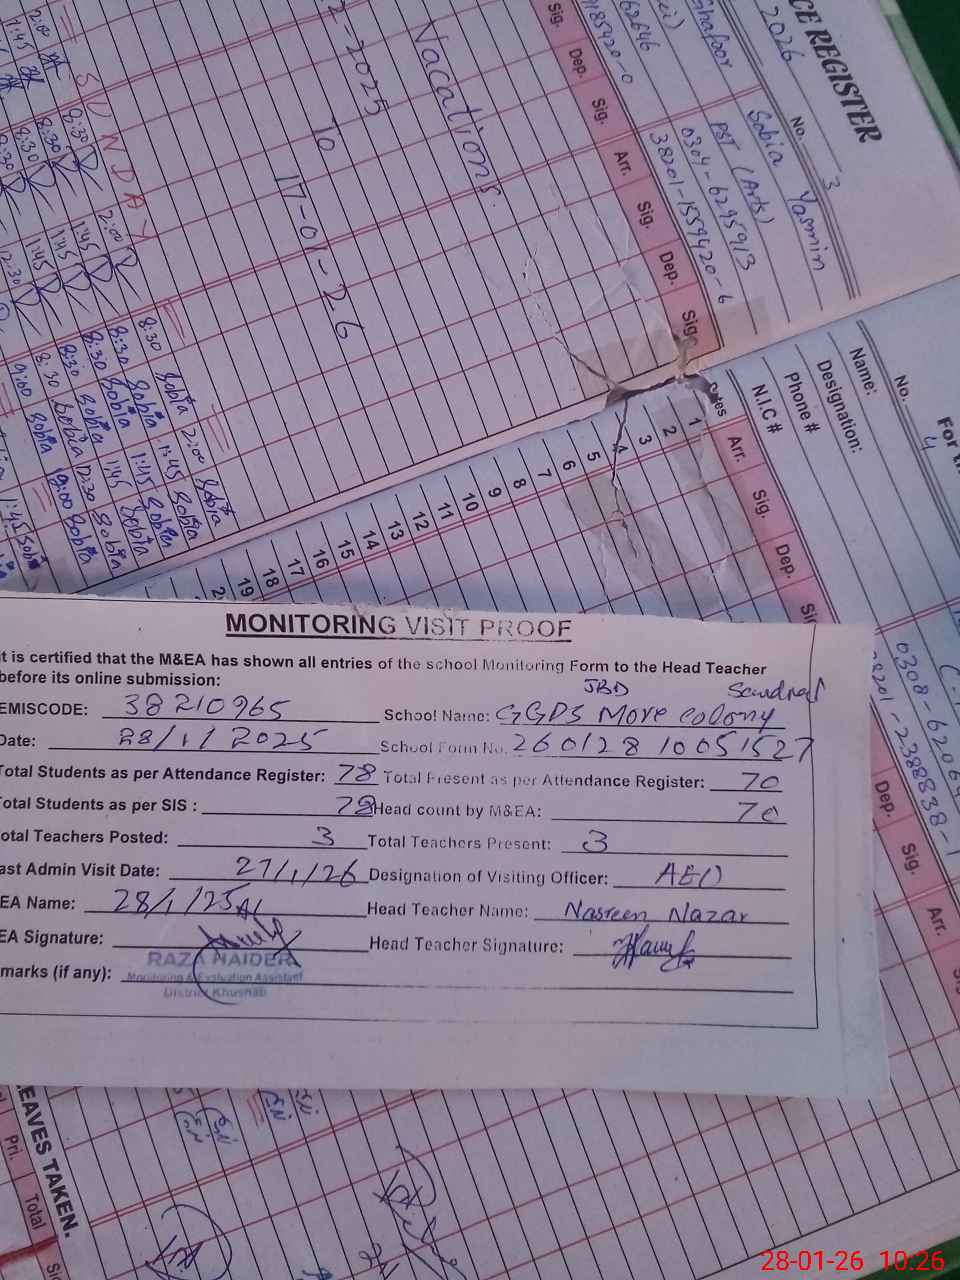 CE REGISTER
2026
No. 3
Sobia Yasmin
PST (Arts)
0304-6295913
38201-1559420-6
Ghafoor
62646
1185920-0
Sig. Dep. Sig. Arr. Sig. Dep. Sig.
Vacations
2-2025 To 17-01-26
SUNDAY
8:30 2:00
8:30 1:45
8:30 1:45
8:30 1:45
12:30
8:30 Sobia 2:00 Sobia
8:30 Sobia 1:45 Sobia
8:30 Sobia 1:45 Sobia
8:30 Sobia 1:45 Sobia
8:30 Sobia 12:30 Sobia
9:00 Sobia 9:00 Sobia
1:45
For
No. 4
Name:
Designation:
Phone #
N.I.C #
0308-6206
38201-2388838-1
Dates Arr. Sig. Dep.
Dep. Sig. Arr.
1
2
3
4
5
6
7
8
9
10
11
12
13
14
15
16
17
18
19
MONITORING VISIT PROOF
it is certified that the M&EA has shown all entries of the school Monitoring Form to the Head Teacher
before its online submission:
EMISCODE: 38210965 School Name: GGPS More colony JBD
Date: 28/1/2025 School Form No. 260128 10051527
Total Students as per Attendance Register: 78 Total Present as per Attendance Register: 70
Total Students as per SIS : 78 Head count by M&EA: 70
Total Teachers Posted: 3 Total Teachers Present: 3
ast Admin Visit Date: 27/1/26 Designation of Visiting Officer: AEO
EA Name: 28/1/25 Head Teacher Name: Nasreen Nazar
EA Signature: Head Teacher Signature:
marks (if any):
RAZA HAIDER
Monitoring & Evaluation Assistant
District Khushab
LEAVES TAKEN.
Pri. Total
28-01-26 10:26